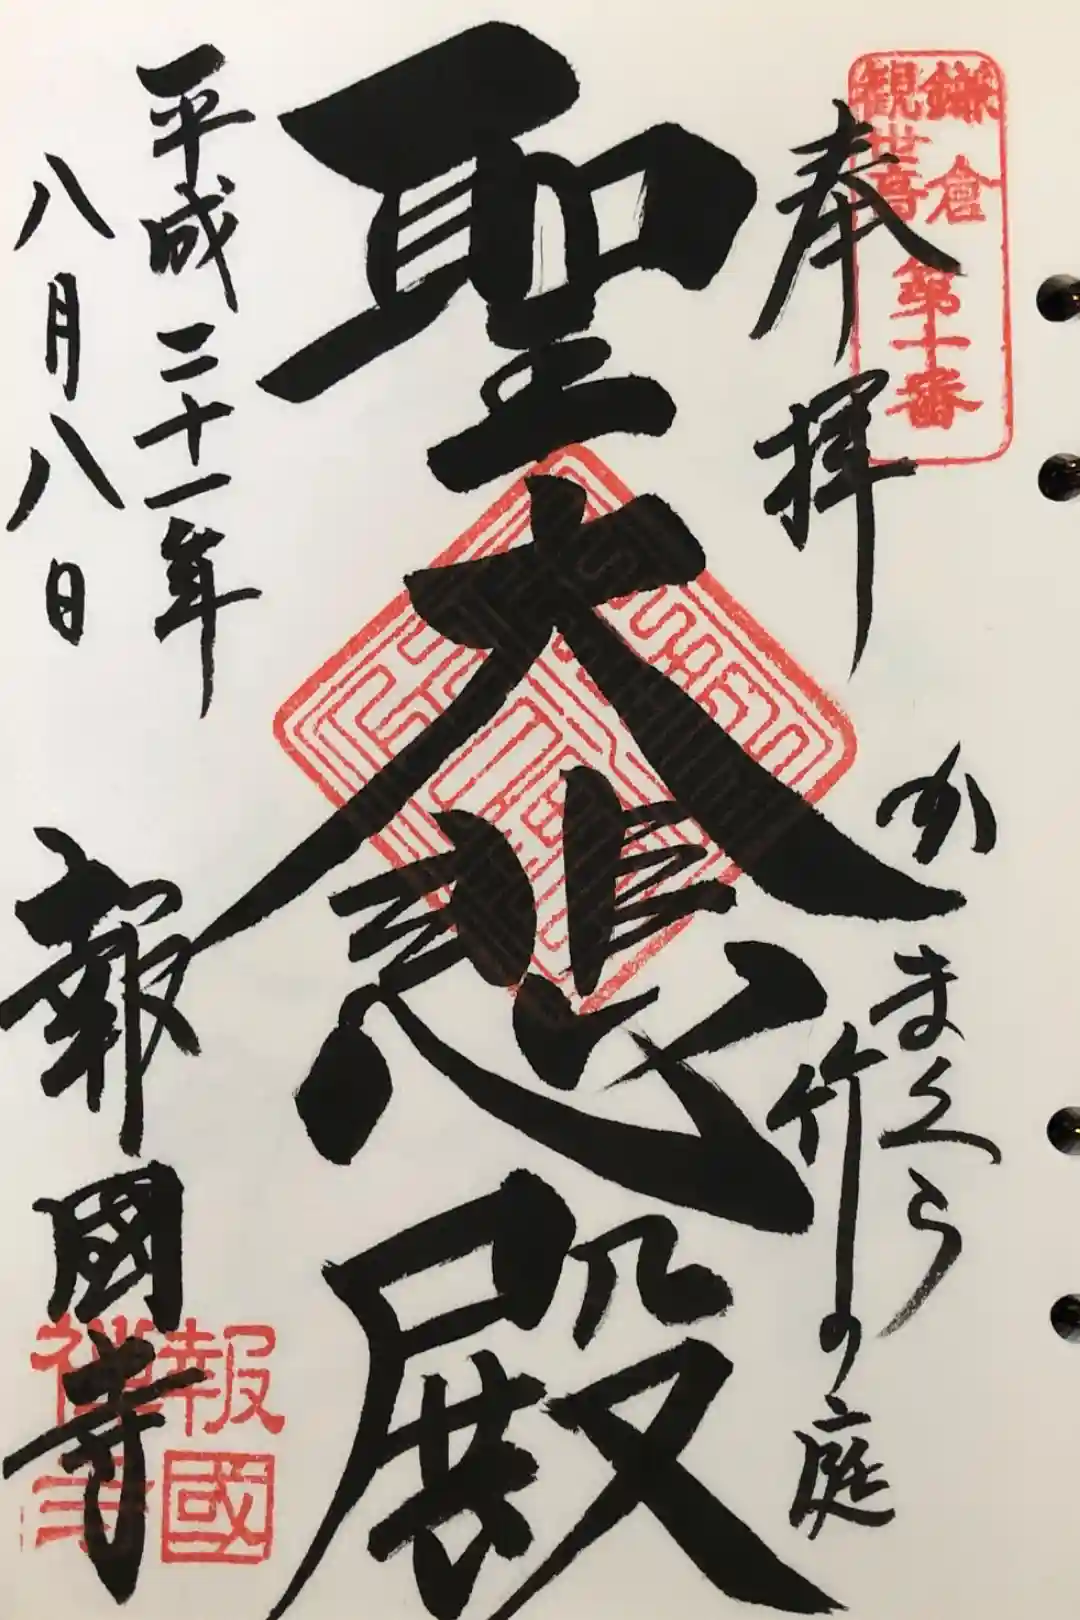 鎌倉
観世音
第十番
奉拝
かまくら
竹の庭
聖大悲殿
平成二十一年
八月八日
報國寺
報國
禅寺